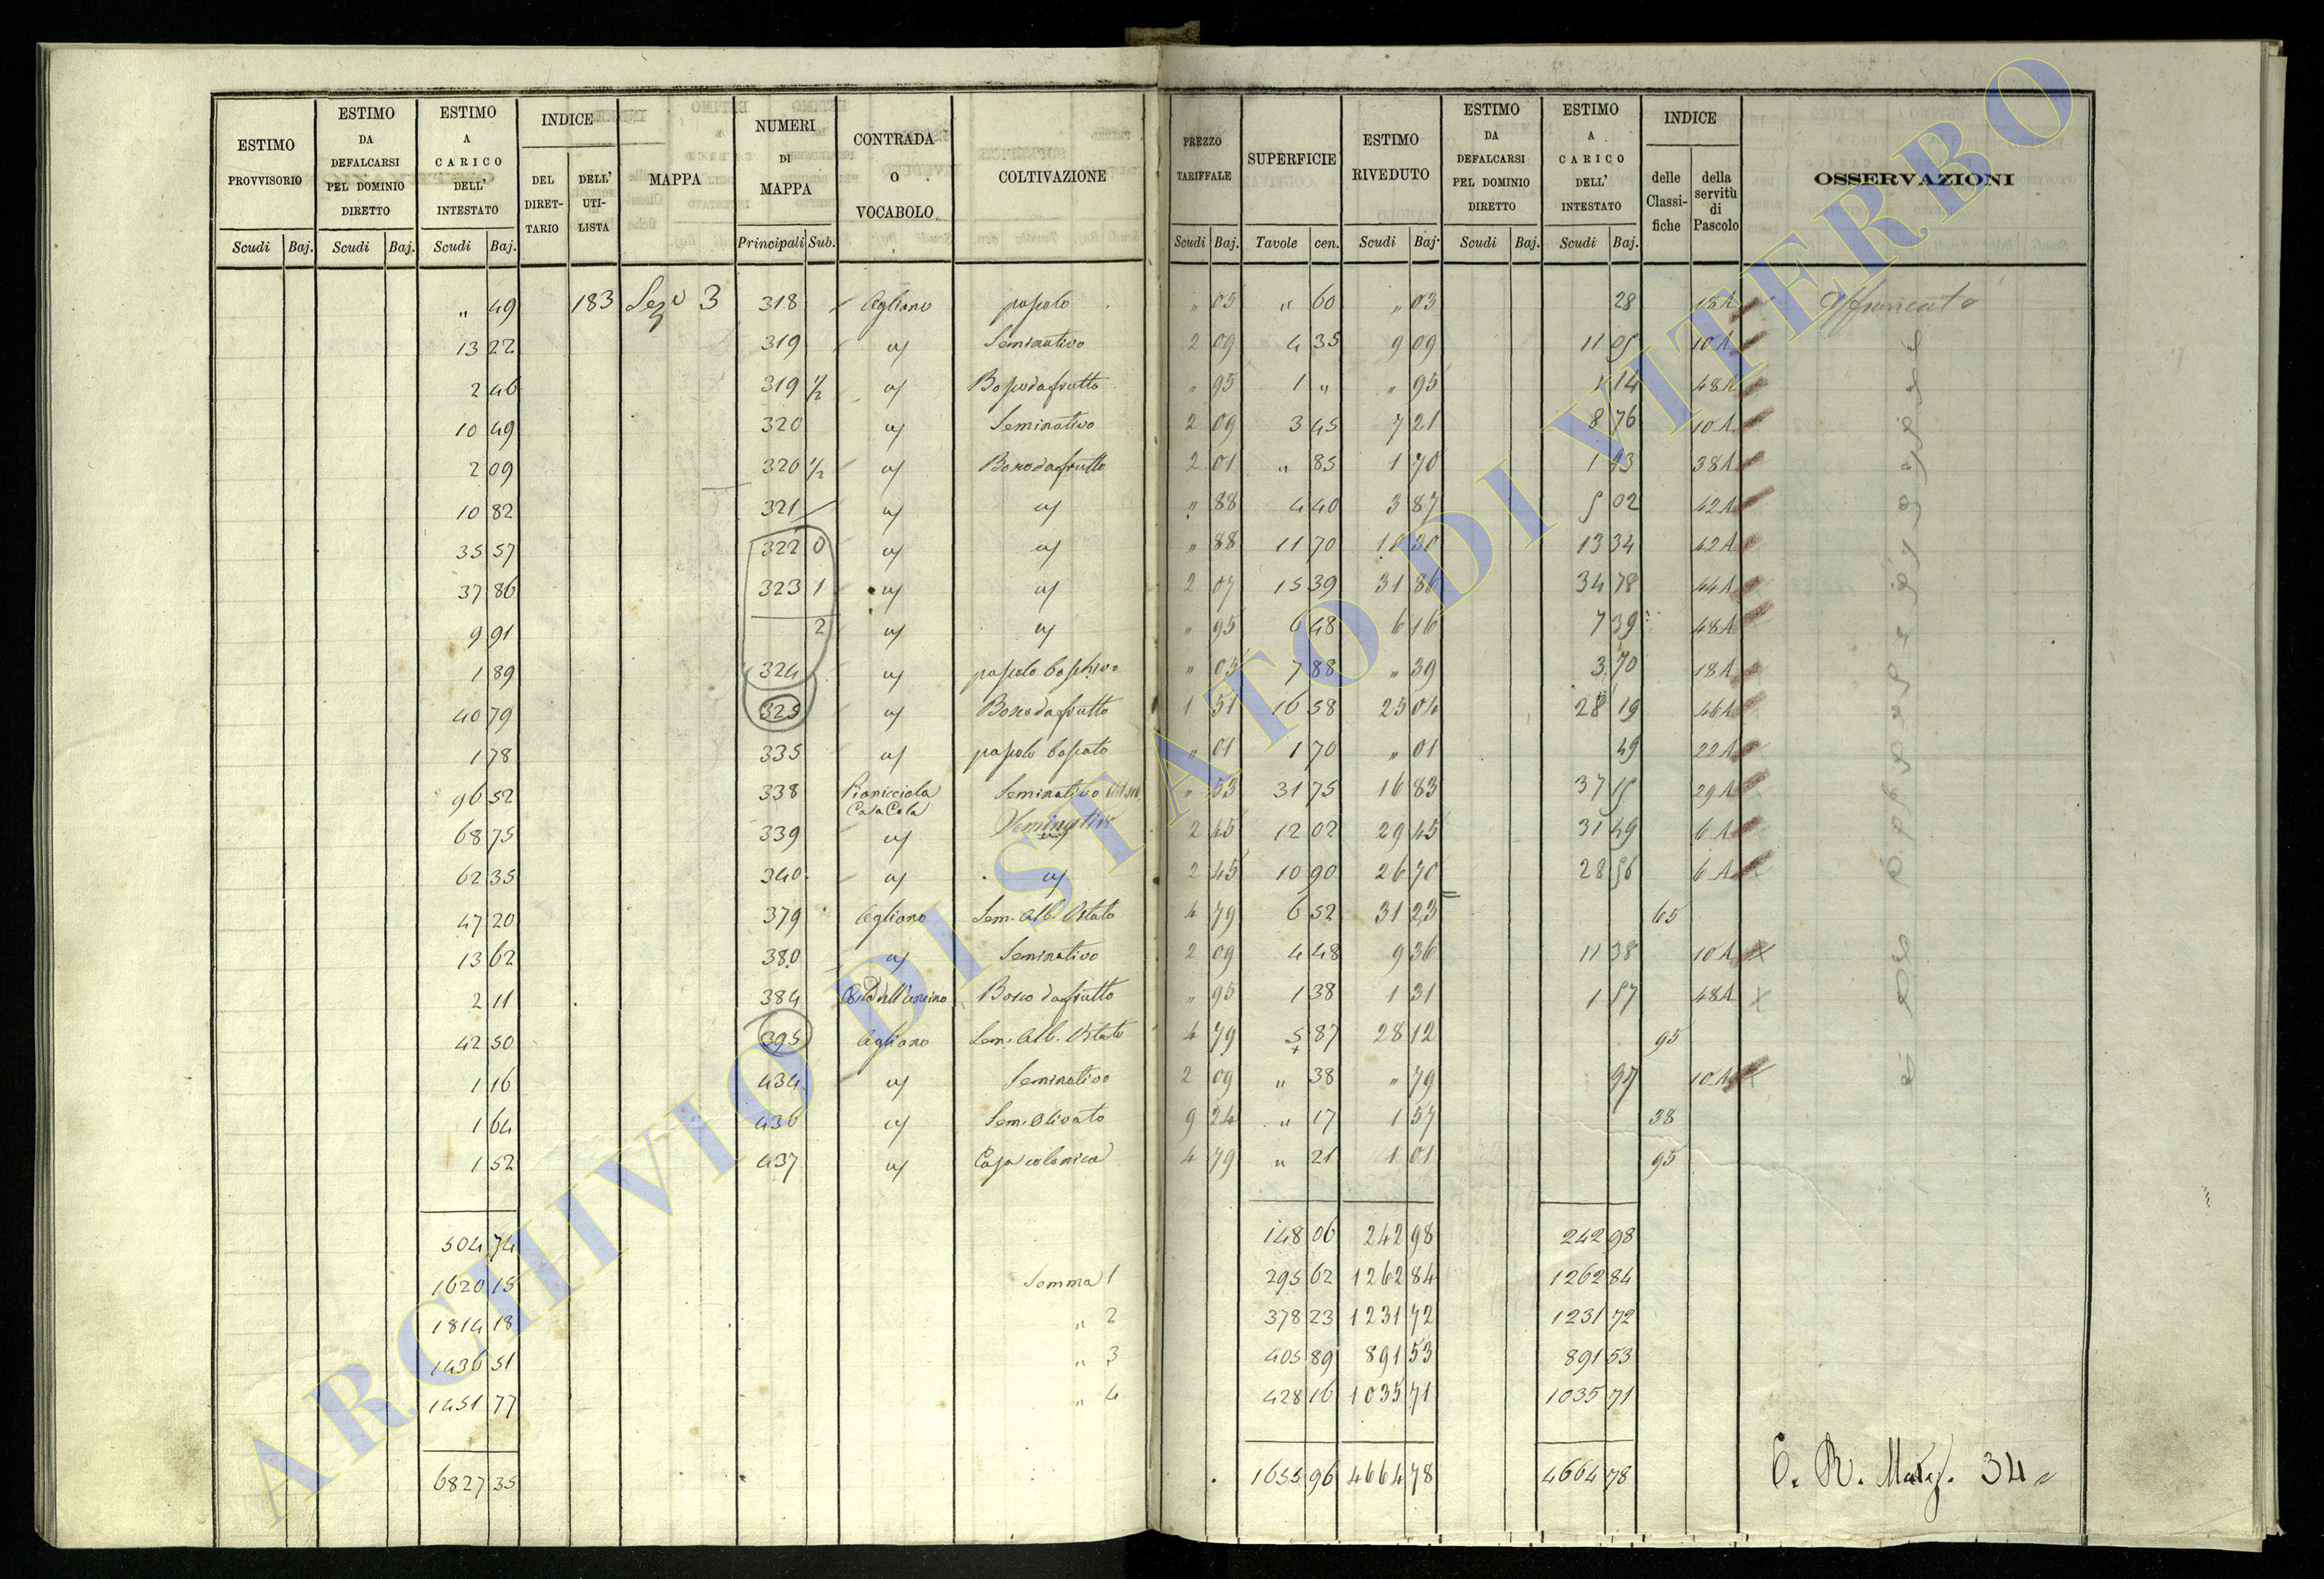 ESTIMO PROVVISORIO | ESTIMO DA DEFALCARSI PEL DOMINIO DIRETTO | ESTIMO A CARICO DELL' INTESTATO | INDICE DEL DIRET-TARIO | DELL' UTI-LISTA | MAPPA | NUMERI DI MAPPA | CONTRADA O VOCABOLO | COLTIVAZIONE | PREZZO TARIFFALE | SUPERFICIE | ESTIMO RIVEDUTO | ESTIMO DA DEFALCARSI PEL DOMINIO DIRETTO | ESTIMO A CARICO DELL' INTESTATO | INDICE delle Classi-fiche | della servitù di Pascolo | OSSERVAZIONI
Scudi Baj. | Scudi Baj. | Scudi Baj. | Principali Sub. | Scudi Baj. | Tavole cen. | Scudi Baj. | Scudi Baj. | Scudi Baj.
" 49 183 Sez 3 318 Agliano pascolo " 05 " 60 " 03 28 15A Affrancato
13 22 319 " Seminativo 2 09 4 35 9 09 11 05 10A
2 46 319 1/2 " Bosco da frutto " 95 1 " " 95 1 14 48A
10 49 320 " Seminativo 2 09 3 45 7 21 8 76 10A
2 09 320 1/2 " Bosco da frutto 2 01 " 85 1 70 1 93 38A
10 82 321 " " " 88 4 40 3 87 5 02 42A
35 57 322 0 " " " 88 11 70 10 30 13 34 42A
37 86 323 1 " " 2 07 15 39 31 86 34 78 44A
9 91 2 " " " 95 6 48 6 16 7 39 48A
1 89 324 " pascolo boschivo " 05 7 88 " 39 3 70 18A
40 79 325 " Bosco da frutto 1 51 16 58 25 04 28 19 46A
1 78 335 " pascolo boscato " 01 1 70 " 01 49 22A
96 52 338 Pianicciola Casa Cola Seminativo " 53 31 75 16 83 37 15 29A
68 75 339 " Seminativo 2 45 12 02 29 45 31 49 6A
62 35 340 " " 2 45 10 90 26 70 28 56 6A
47 20 379 Agliano Sem. Alb. Vitato 4 79 6 52 31 23 65
13 62 380 " Seminativo 2 09 4 48 9 36 11 38 10A
2 11 384 Bosco da frutto " 95 1 38 1 31 1 57 48A
42 50 395 Agliano Sem. Alb. Vitato 4 79 5 87 28 12 95
1 16 434 " Seminativo 2 09 " 38 " 79 97 10A
1 64 436 " Sem. Olivato 9 24 " 17 1 57 38
1 52 437 " Casa colonica 4 79 " 21 1 01 95
504 74 148 06 242 98 242 98
1620 15 Somma 1 295 62 1262 84 1262 84
1814 18 " 2 378 23 1231 72 1231 72
1436 51 " 3 405 89 891 53 891 53
1451 77 " 4 428 16 1035 71 1035 71
6827 35 1655 96 4664 78 4664 78
C. R. Matg. 34
ARCHIVIO DI STATO DI VITERBO